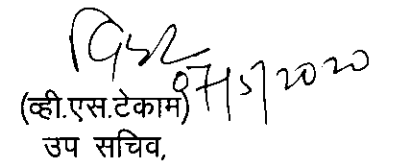 07/5/2020
(व्ही.एस.टेकाम)
उप सचिव,